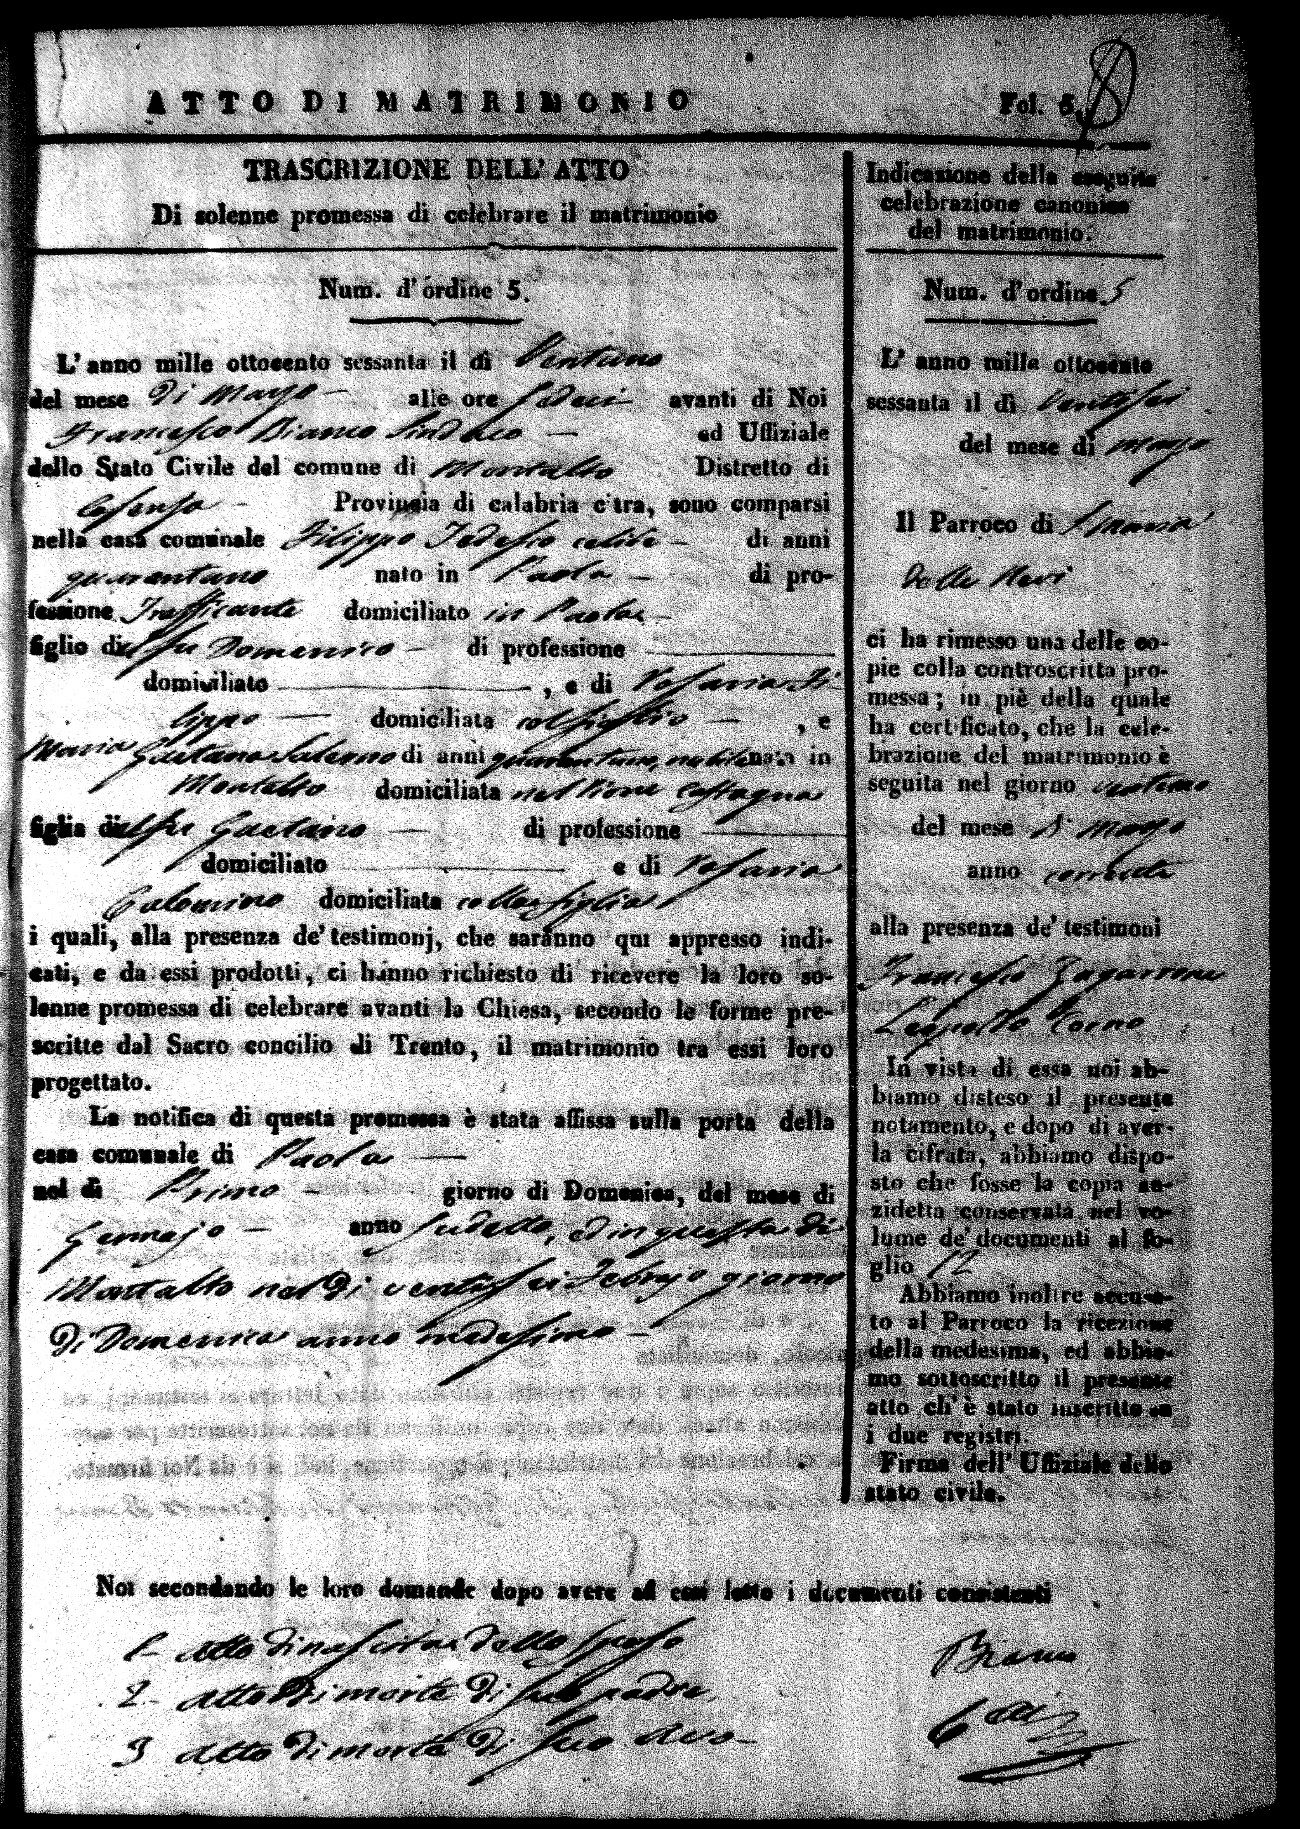 ATTO DI MATRIMONIO
Fol. 5.
TRASCRIZIONE DELL' ATTO
Di solenne promessa di celebrare il matrimonio
Num. d'ordine 5.
L'anno mille ottocento sessanta il dì Ventuno
del mese di Marzo alle ore sedici avanti di Noi
Francesco Bianco Sindaco ed Uffiziale
dello Stato Civile del comune di Montalto Distretto di
Cosenza Provincia di calabria citra, sono comparsi
nella casa comunale Filippo Tedesco celibe di anni
quarantuno nato in Paola di pro-
fessione Trafficante domiciliato in Paola
figlio del fu Domenico di professione
domiciliato , e di Rosaria Fi
lippo domiciliata col figlio , e
Maria Gaetana Salerno di anni quarantuno, nubile nata in
Montalto domiciliata nel Rione Castagna
figlia del fu Gaetano di professione
domiciliato e di Rosaria
Palomino domiciliata colla figlia
i quali, alla presenza de' testimonj, che saranno qui appresso indi-
cati, e da essi prodotti, ci hanno richiesto di ricevere la loro so-
lenne promessa di celebrare avanti la Chiesa, secondo le forme pre-
scritte dal Sacro concilio di Trento, il matrimonio tra essi loro
progettato.
La notifica di questa promessa è stata affissa sulla porta della
casa comunale di Paola
nel dì Primo giorno di Domenica, del mese di
Gennajo anno sudetto, ed in questa di
Montalto nel dì ventisei Febrajo giorno
di Domenica anno medesimo
Indicazione della eseguita
celebrazione canonica
del matrimonio.
Num. d'ordine 5
L' anno mille ottocento
sessanta il dì Ventisei
del mese di marzo
Il Parroco di S. Maria
della Nevi
ci ha rimesso una delle co-
pie colla controscritta pro-
messa; in piè della quale
ha certificato, che la cele-
brazione del matrimonio è
seguita nel giorno
del mese di marzo
anno corrente
alla presenza de' testimoni
Francesco Zagarrone
Leopoldo Corno
In vista di essa noi ab-
biamo disteso il presente
notamento, e dopo di aver-
la cifrata, abbiamo dispo-
sto che fosse la copia an-
zidetta conservata nel vo-
lume de' documenti al fo-
glio 12
Abbiamo inoltre accusa-
to al Parroco la ricezione
della medesima, ed abbia-
mo sottoscritto il presente
atto ch' è stato inscritto su
i due registri.
Firma dell' Uffiziale dello
stato civile.
Noi secondando le loro domande dopo avere ad essi letto i documenti consistenti
1 - Atto di nascita dello sposo
2 - Atto di morte di suo padre
3 Atto di morte di suo avo
Bianco